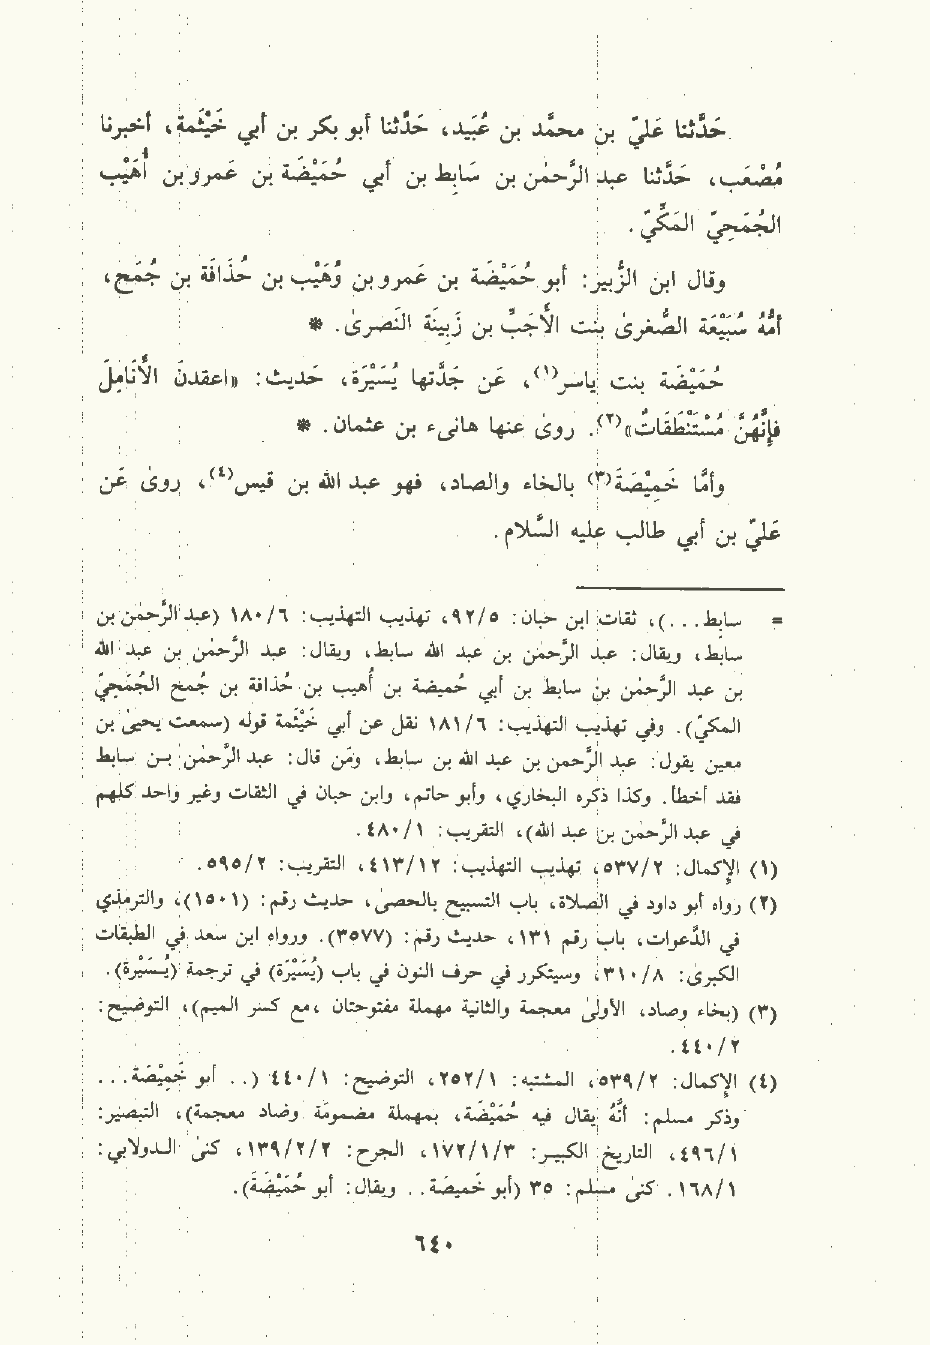 حَدَّثنا عَليّ بن محمَّد بن عُبَيد، حَدَّثنا أبو بكر بن أبي خَيْثَمة، أخبرنا
مُصْعَب، حَدَّثنا عبد الرَّحمٰن بن سَابِط بن أبي حُمَيْضَة بن عَمرو بن أُهَيْب
الجُمَحِيّ المَكِّيّ.
وقال ابن الزُّبير: أبو حُمَيْضَة بن عَمرو بن وُهَيْب بن حُذَافَة بن جُمَح،
أُمُّهُ سُبَيْعَة الصُّغرىٰ بنت الأَجَبِّ بن زَبِينَة النَصرىٰ. *
حُمَيْضَة بنت ياسر(١)، عَن جَدَّتها يُسَيْرَة، حَديث: «اعقدنَ الأَنَامِلَ
فإِنَّهُنَّ مُسْتَنْطَقَاتٌ»(٢). روىٰ عنها هانىء بن عثمان. *
وأمَّا خَمِيْصَةَ(٣) بالخاء والصاد، فهو عبد الله بن قيس(٤)، روىٰ عَن
عَليّ بن أبي طالب عليه السَّلام.
= سابط...)، ثقات ابن حبان: ٩٢/٥، تهذيب التهذيب: ١٨٠/٦ (عبد الرَّحمٰن بن
سابط، ويقال: عبد الرَّحمٰن بن عبد الله سابط، ويقال: عبد الرَّحمٰن بن عبد الله
بن عبد الرَّحمٰن بن سابط بن أبي حُميضة بن أُهيب بن حُذافة بن جُمح الجُمَحِيّ
المكيّ). وفي تهذيب التهذيب: ١٨١/٦ نقل عن أبي خَيْثمة قوله (سمعت يحيىٰ بن
معين يقول: عبد الرَّحمن بن عبد الله بن سابط، ومَن قال: عبد الرَّحمٰن بن سابط
فقد أخطأ. وكذا ذكره البخاري، وأبو حاتم، وابن حبان في الثقات وغير واحد كلهم
في عبد الرَّحمٰن بن عبد الله)، التقريب: ٤٨٠/١.
(١) الإكمال: ٥٣٧/٢، تهذيب التهذيب: ٤١٣/١٢، التقريب: ٥٩٥/٢.
(٢) رواه أبو داود في الصلاة، باب التسبيح بالحصىٰ، حديث رقم: (١٥٠١)، والترمذي
في الدَّعوات، باب رقم ١٣١، حديث رقم: (٣٥٧٧). ورواه ابن سعد في الطبقات
الكبرىٰ: ٣١٠/٨، وسيتكرر في حرف النون في باب (يُسَيْرَة) في ترجمة (يُسَيْرة).
(٣) (بخاء وصاد، الأولىٰ معجمة والثانية مهملة مفتوحتان، مع كسر الميم)، التوضيح:
٤٤٠/٢.
(٤) الإكمال: ٥٣٩/٢، المشتبه: ٢٥٢/١، التوضيح: ٤٤٠/١ (.. أبو خَمِيْصَة...
وذكر مسلم: أنَّهُ يقال فيه حُمَيْضَة، بمهملة مضمومة وضاد معجمة)، التبصير:
٤٩٦/١، التاريخ الكبير: ١٧٢/١/٣، الجرح: ١٣٩/٢/٢، كنىٰ الدولابي:
١٦٨/١. كنىٰ مسلم: ٣٥ (أبو خَميصَة.. ويقال: أبو حُمَيْضَة).
٦٤٠